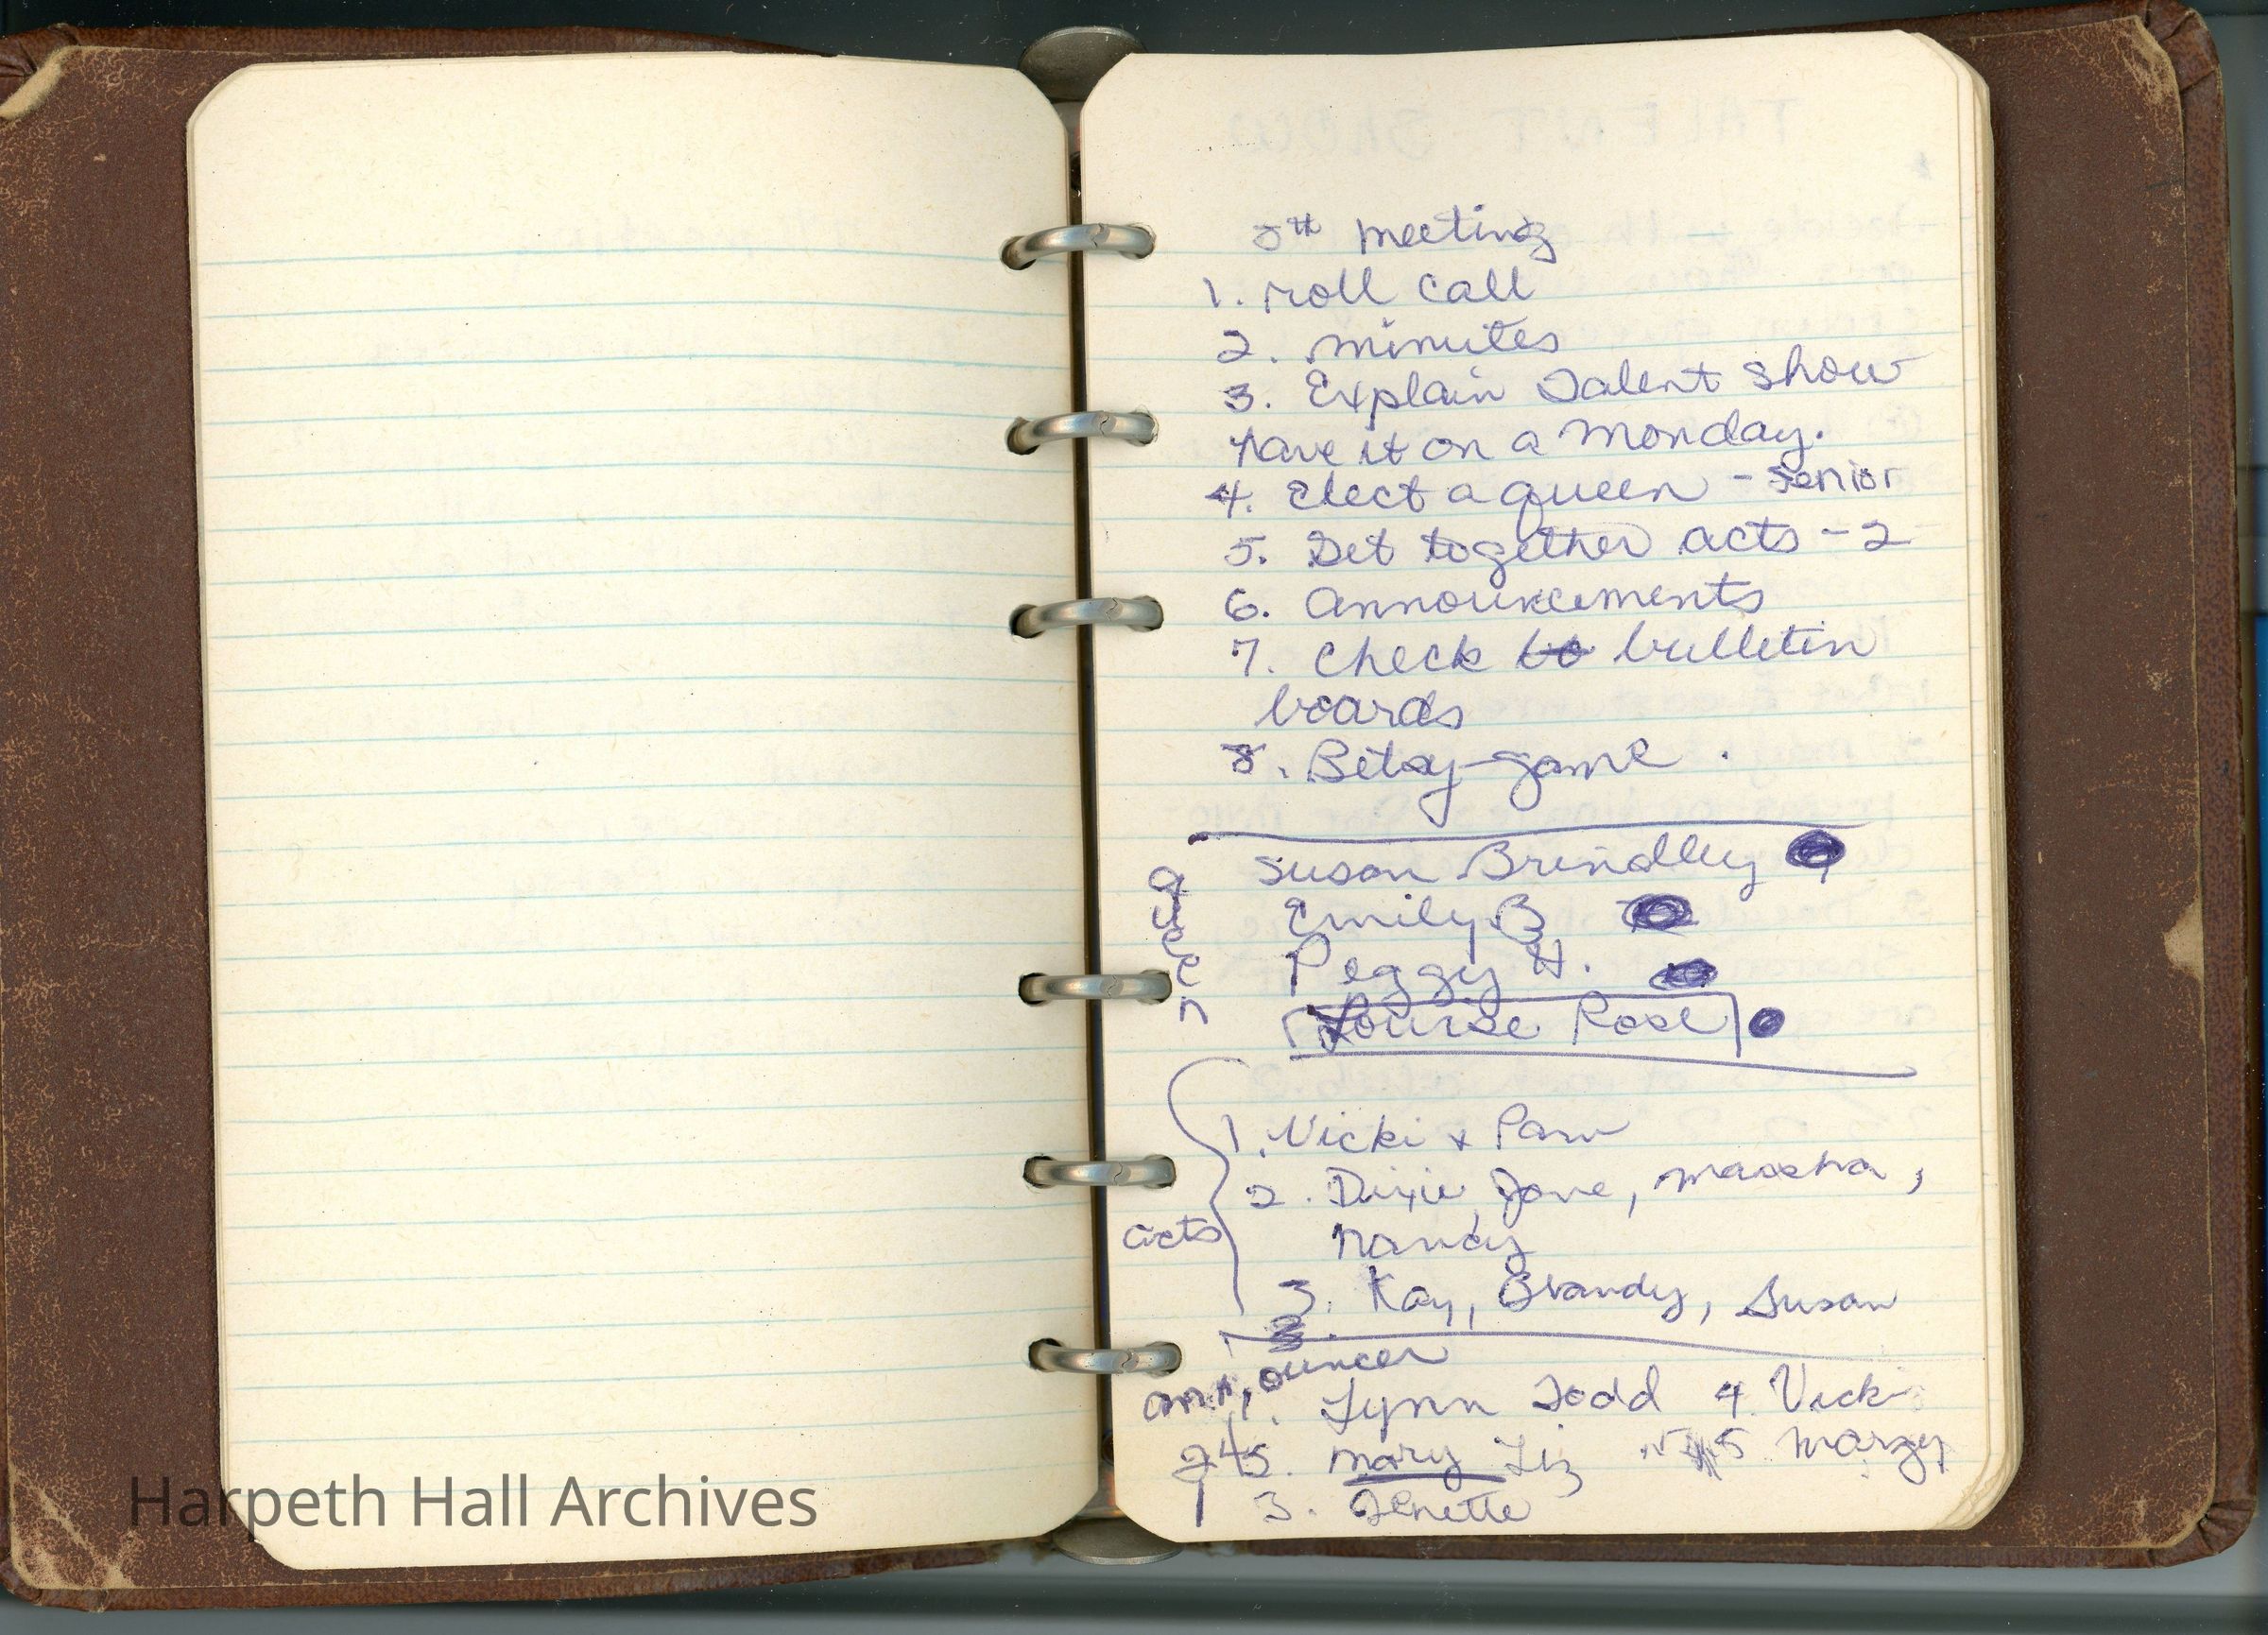 8th meeting
1. roll call
2. minutes
3. Explain Talent Show
have it on a Monday.
4. Elect a queen - senior
5. Get together acts - 2
6. announcements
7. check to bulletin
boards
8. Betsy-game.
Queen
Susan Brindley
Emily B
Peggy H.
Louise Rose
acts
1. Vicki + Pam
2. Dixie, Jane, marsha,
Nancy
3. Kay, Brandy, Susan
announcer
1. Lynn Todd 4. Vicki
2. mary Liz 5 Margy
3. Jenette
Harpeth Hall Archives